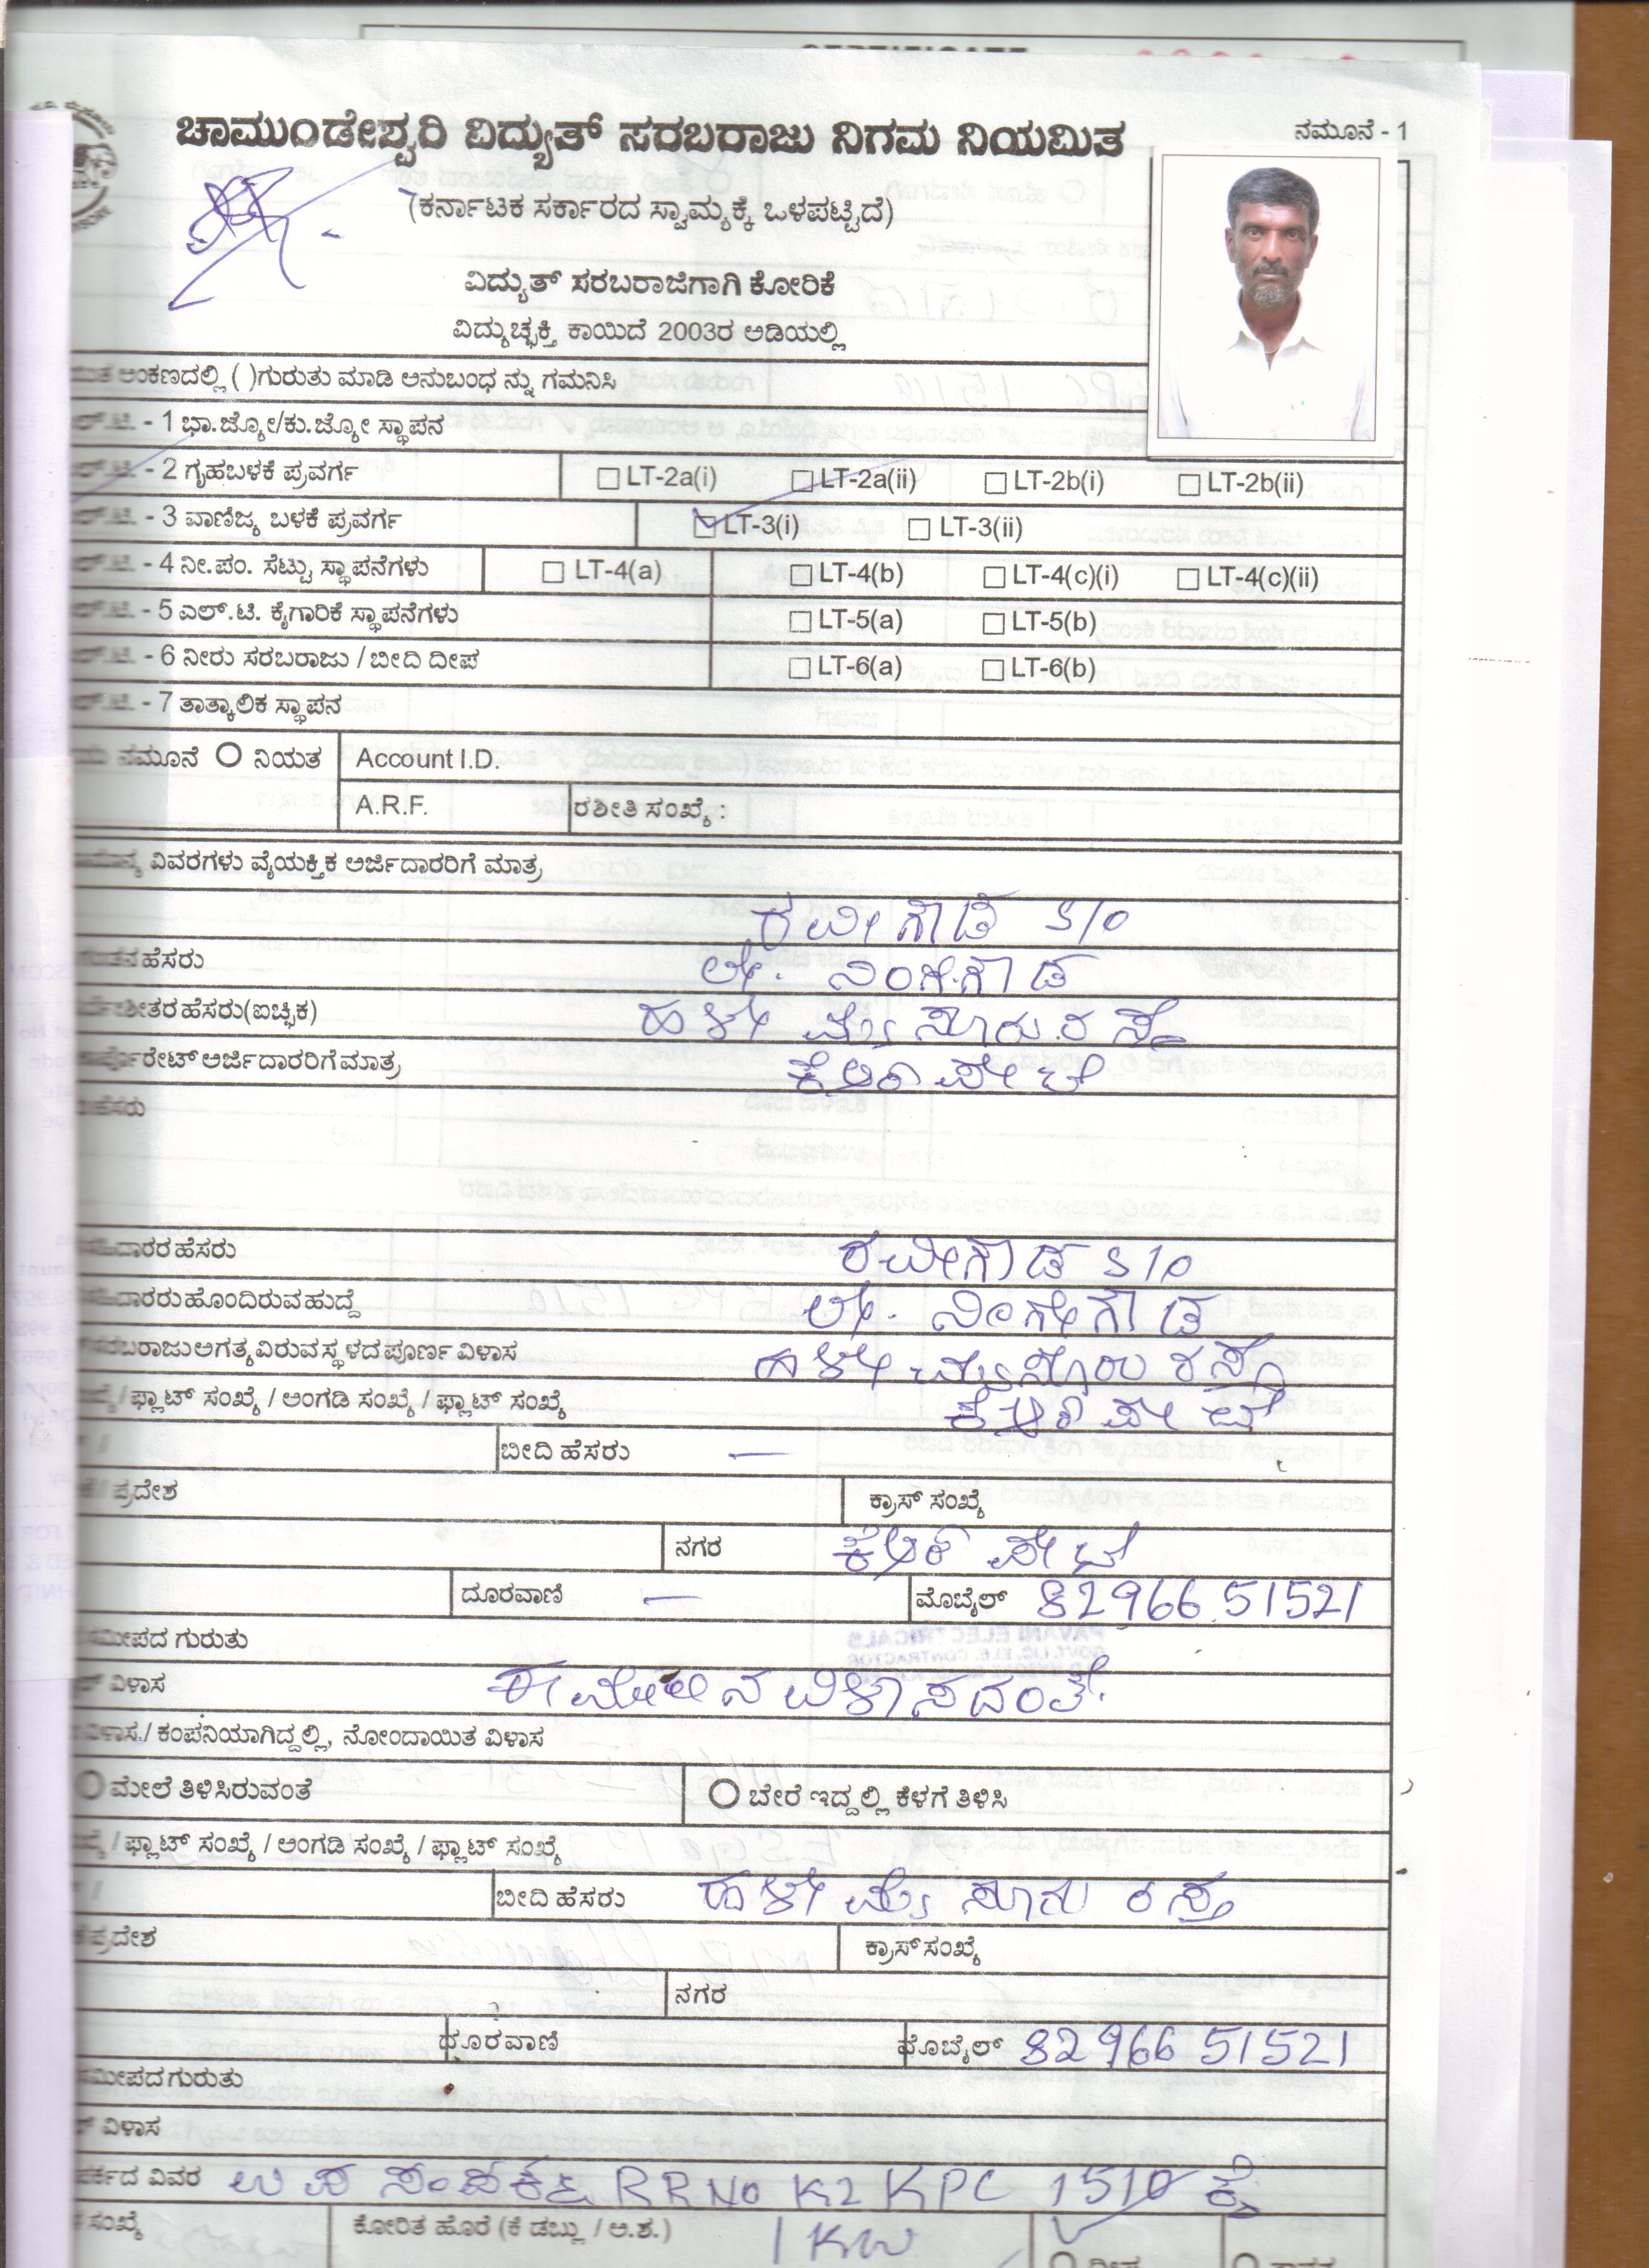 ನಮೂನೆ - 1
ಚಾಮುಂಡೇಶ್ವರಿ ವಿದ್ಯುತ್ ಸರಬರಾಜು ನಿಗಮ ನಿಯಮಿತ
(ಕರ್ನಾಟಕ ಸರ್ಕಾರದ ಸ್ವಾಮ್ಯಕ್ಕೆ ಒಳಪಟ್ಟಿದೆ)
ವಿದ್ಯುತ್ ಸರಬರಾಜಿಗಾಗಿ ಕೋರಿಕೆ
ವಿದ್ಯುಚ್ಛಕ್ತಿ ಕಾಯಿದೆ 2003ರ ಅಡಿಯಲ್ಲಿ
ಅಂಕಣದಲ್ಲಿ ( )ಗುರುತು ಮಾಡಿ ಅನುಬಂಧ ನ್ನು ಗಮನಿಸಿ
- 1 ಭಾ.ಜ್ಯೋ/ಕು.ಜ್ಯೋ ಸ್ಥಾಪನ
- 2 ಗೃಹಬಳಕೆ ಪ್ರವರ್ಗ LT-2a(i) LT-2a(ii) LT-2b(i) LT-2b(ii)
- 3 ವಾಣಿಜ್ಯ ಬಳಕೆ ಪ್ರವರ್ಗ LT-3(i) LT-3(ii)
- 4 ನೀ.ಪಂ. ಸೆಟ್ಟು ಸ್ಥಾಪನೆಗಳು LT-4(a) LT-4(b) LT-4(c)(i) LT-4(c)(ii)
- 5 ಎಲ್.ಟಿ. ಕೈಗಾರಿಕೆ ಸ್ಥಾಪನೆಗಳು LT-5(a) LT-5(b)
- 6 ನೀರು ಸರಬರಾಜು / ಬೀದಿ ದೀಪ LT-6(a) LT-6(b)
- 7 ತಾತ್ಕಾಲಿಕ ಸ್ಥಾಪನ
ನಮೂನೆ ನಿಯತ Account I.D.
A.R.F. ರಶೀತಿ ಸಂಖ್ಯೆ :
ವಿವರಗಳು ವೈಯಕ್ತಿಕ ಅರ್ಜಿದಾರರಿಗೆ ಮಾತ್ರ
ರವೀಗೌಡ S/o
ಹೆಸರು ಲೇ. ನಿಂಗೇಗೌಡ
ಹೆಸರು(ಐಚ್ಛಿಕ) ಹಳೇ ಮೈಸೂರು ರಸ್ತೆ
ಅರ್ಜಿದಾರರಿಗೆ ಮಾತ್ರ ಕೆಆರ್ ಪೇಟೆ
ಹೆಸರು
ಹೆಸರು ರವೀಗೌಡ S/o
ಹೊಂದಿರುವ ಹುದ್ದೆ ಲೇ. ನಿಂಗೇಗೌಡ
ಅಗತ್ಯವಿರುವ ಸ್ಥಳದ ಪೂರ್ಣ ವಿಳಾಸ ಹಳೇ ಮೈಸೂರು ರಸ್ತೆ
/ ಫ್ಲಾಟ್ ಸಂಖ್ಯೆ / ಅಂಗಡಿ ಸಂಖ್ಯೆ / ಫ್ಲಾಟ್ ಸಂಖ್ಯೆ ಕೆಆರ್ ಪೇಟೆ
ಬೀದಿ ಹೆಸರು —
/ ಪ್ರದೇಶ ಕ್ರಾಸ್ ಸಂಖ್ಯೆ
ನಗರ ಕೆಆರ್ ಪೇಟೆ
ದೂರವಾಣಿ — ಮೊಬೈಲ್ 8296651521
ಗುರುತು
ವಿಳಾಸ ಈ ಮೇಲಿನ ವಿಳಾಸದಂತೆ.
ವಿಳಾಸ / ಕಂಪನಿಯಾಗಿದ್ದಲ್ಲಿ, ನೋಂದಾಯಿತ ವಿಳಾಸ
ಮೇಲೆ ತಿಳಿಸಿರುವಂತೆ ಬೇರೆ ಇದ್ದಲ್ಲಿ ಕೆಳಗೆ ತಿಳಿಸಿ
/ ಫ್ಲಾಟ್ ಸಂಖ್ಯೆ / ಅಂಗಡಿ ಸಂಖ್ಯೆ / ಫ್ಲಾಟ್ ಸಂಖ್ಯೆ
ಬೀದಿ ಹೆಸರು ಹಳೇ ಮೈಸೂರು ರಸ್ತೆ
ಪ್ರದೇಶ ಕ್ರಾಸ್ ಸಂಖ್ಯೆ
ನಗರ
ದೂರವಾಣಿ ಮೊಬೈಲ್ 8296651521
ಗುರುತು
ವಿಳಾಸ
ವಿವರ RR No K2 KPC 1510 ಕ್ಕೆ
ಸಂಖ್ಯೆ ಕೋರಿತ ಹೊರೆ (ಕೆ ಡಬ್ಲ್ಯು / ಅ.ಶ.) 1 KW